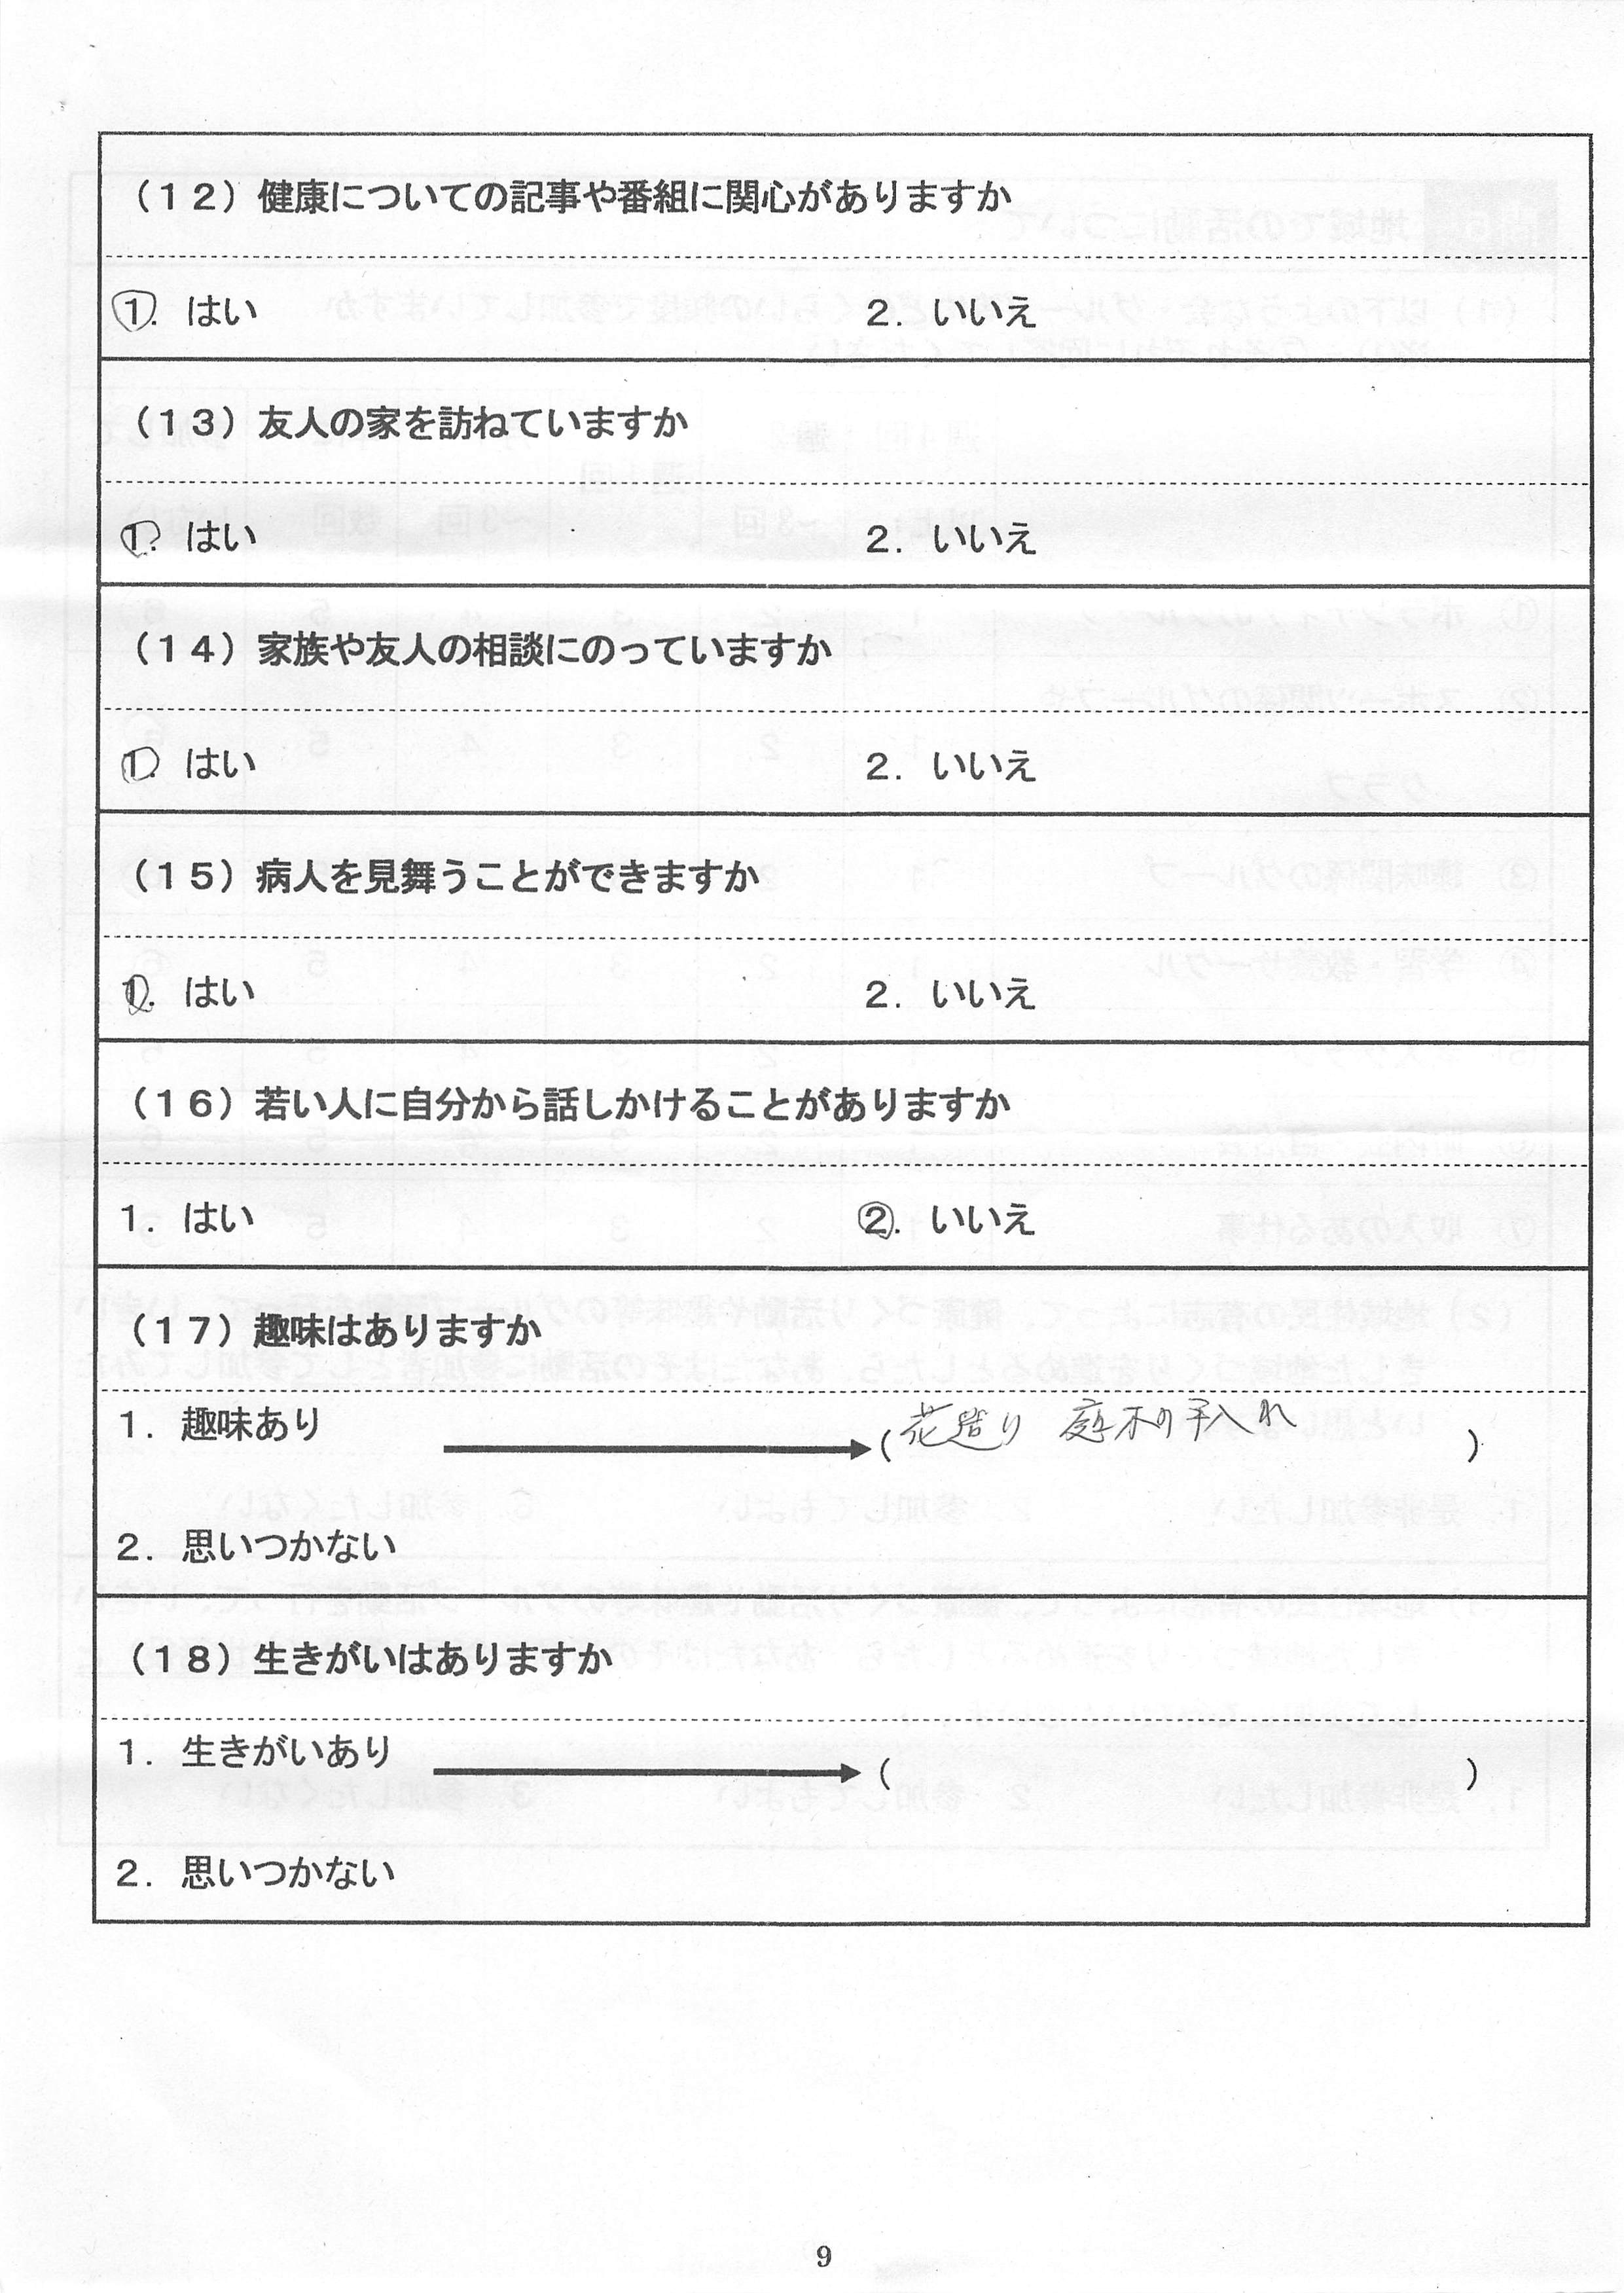 （１２）健康についての記事や番組に関心がありますか
①．はい　２．いいえ
（１３）友人の家を訪ねていますか
①．はい　２．いいえ
（１４）家族や友人の相談にのっていますか
①．はい　２．いいえ
（１５）病人を見舞うことができますか
①．はい　２．いいえ
（１６）若い人に自分から話しかけることがありますか
１．はい　②．いいえ
（１７）趣味はありますか
１．趣味あり　（花造り　庭木の手入れ　）
２．思いつかない
（１８）生きがいはありますか
１．生きがいあり　（　）
２．思いつかない
9